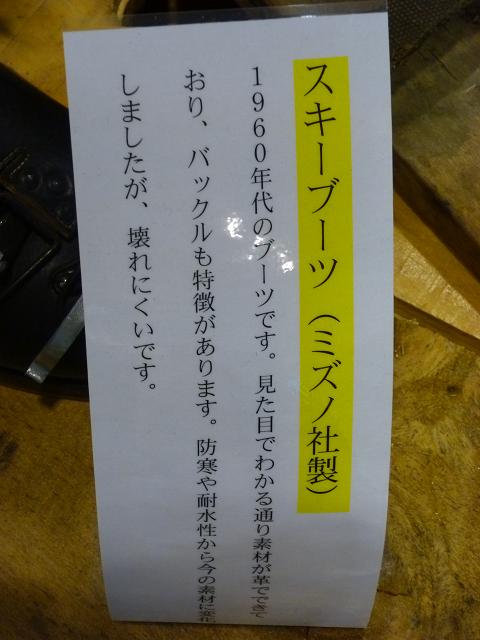 スキーブーツ（ミズノ社製）
1960年代のブーツです。見た目でわかる通り素材が革でできて
おり、バックルも特徴があります。防寒や耐水性から今の素材に変化
しましたが、壊れにくいです。